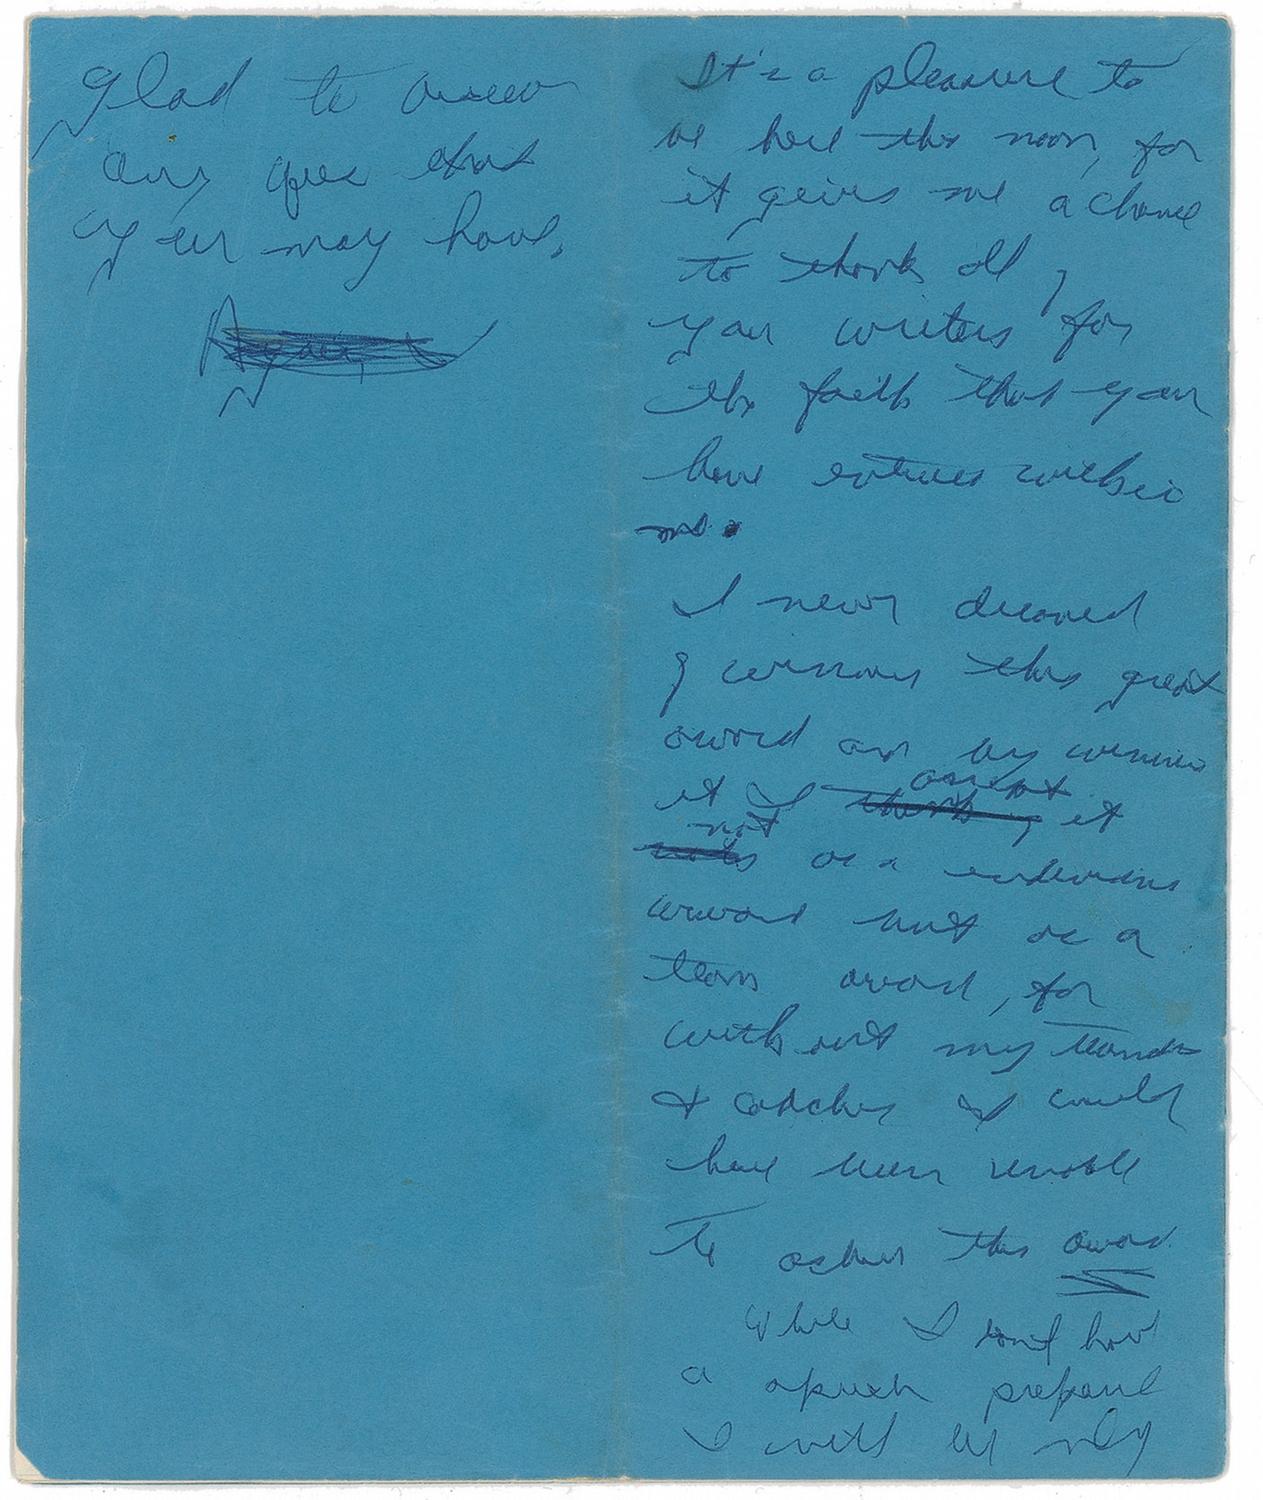 It's a pleasure to
be here this noon, for
it gives me a chance
to thank all
you writers for
the faith that you
have within
me.
I never dreamed
of winning this great
award and by winning
it I accept it
not as a
award but as a
team award, for
without my
& coaches I could
have been unable
to this award
While I don't have
a speech prepared
I will be only
Glad to answer
any ques that
you may have.
Again,